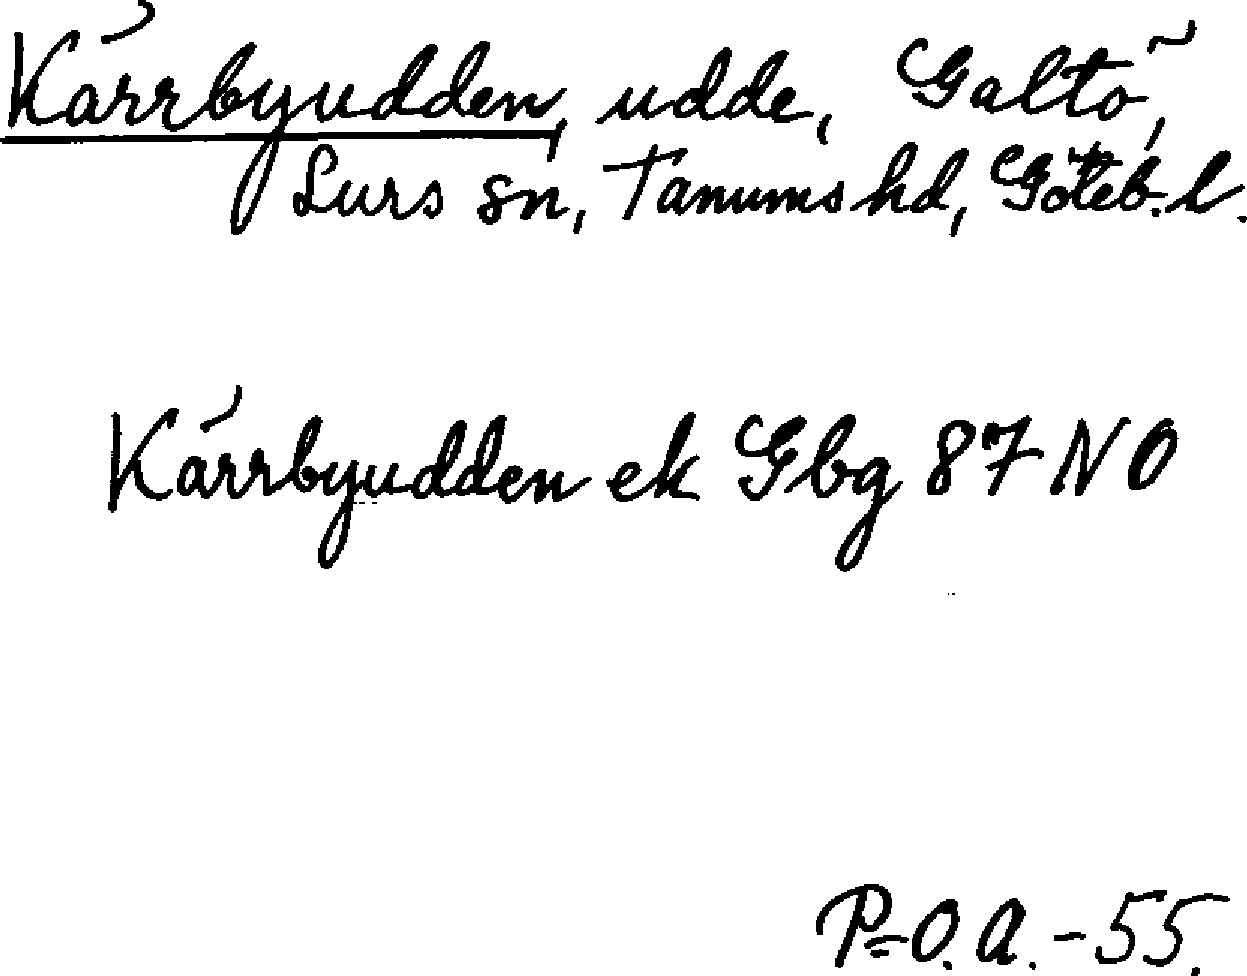 Kärrbyudden, udde, Galtö,
Lurs sn, Tanums hd, Göteb. l.
Kärrbyudden ek Gbg 87 NO
P-O. A. -55.